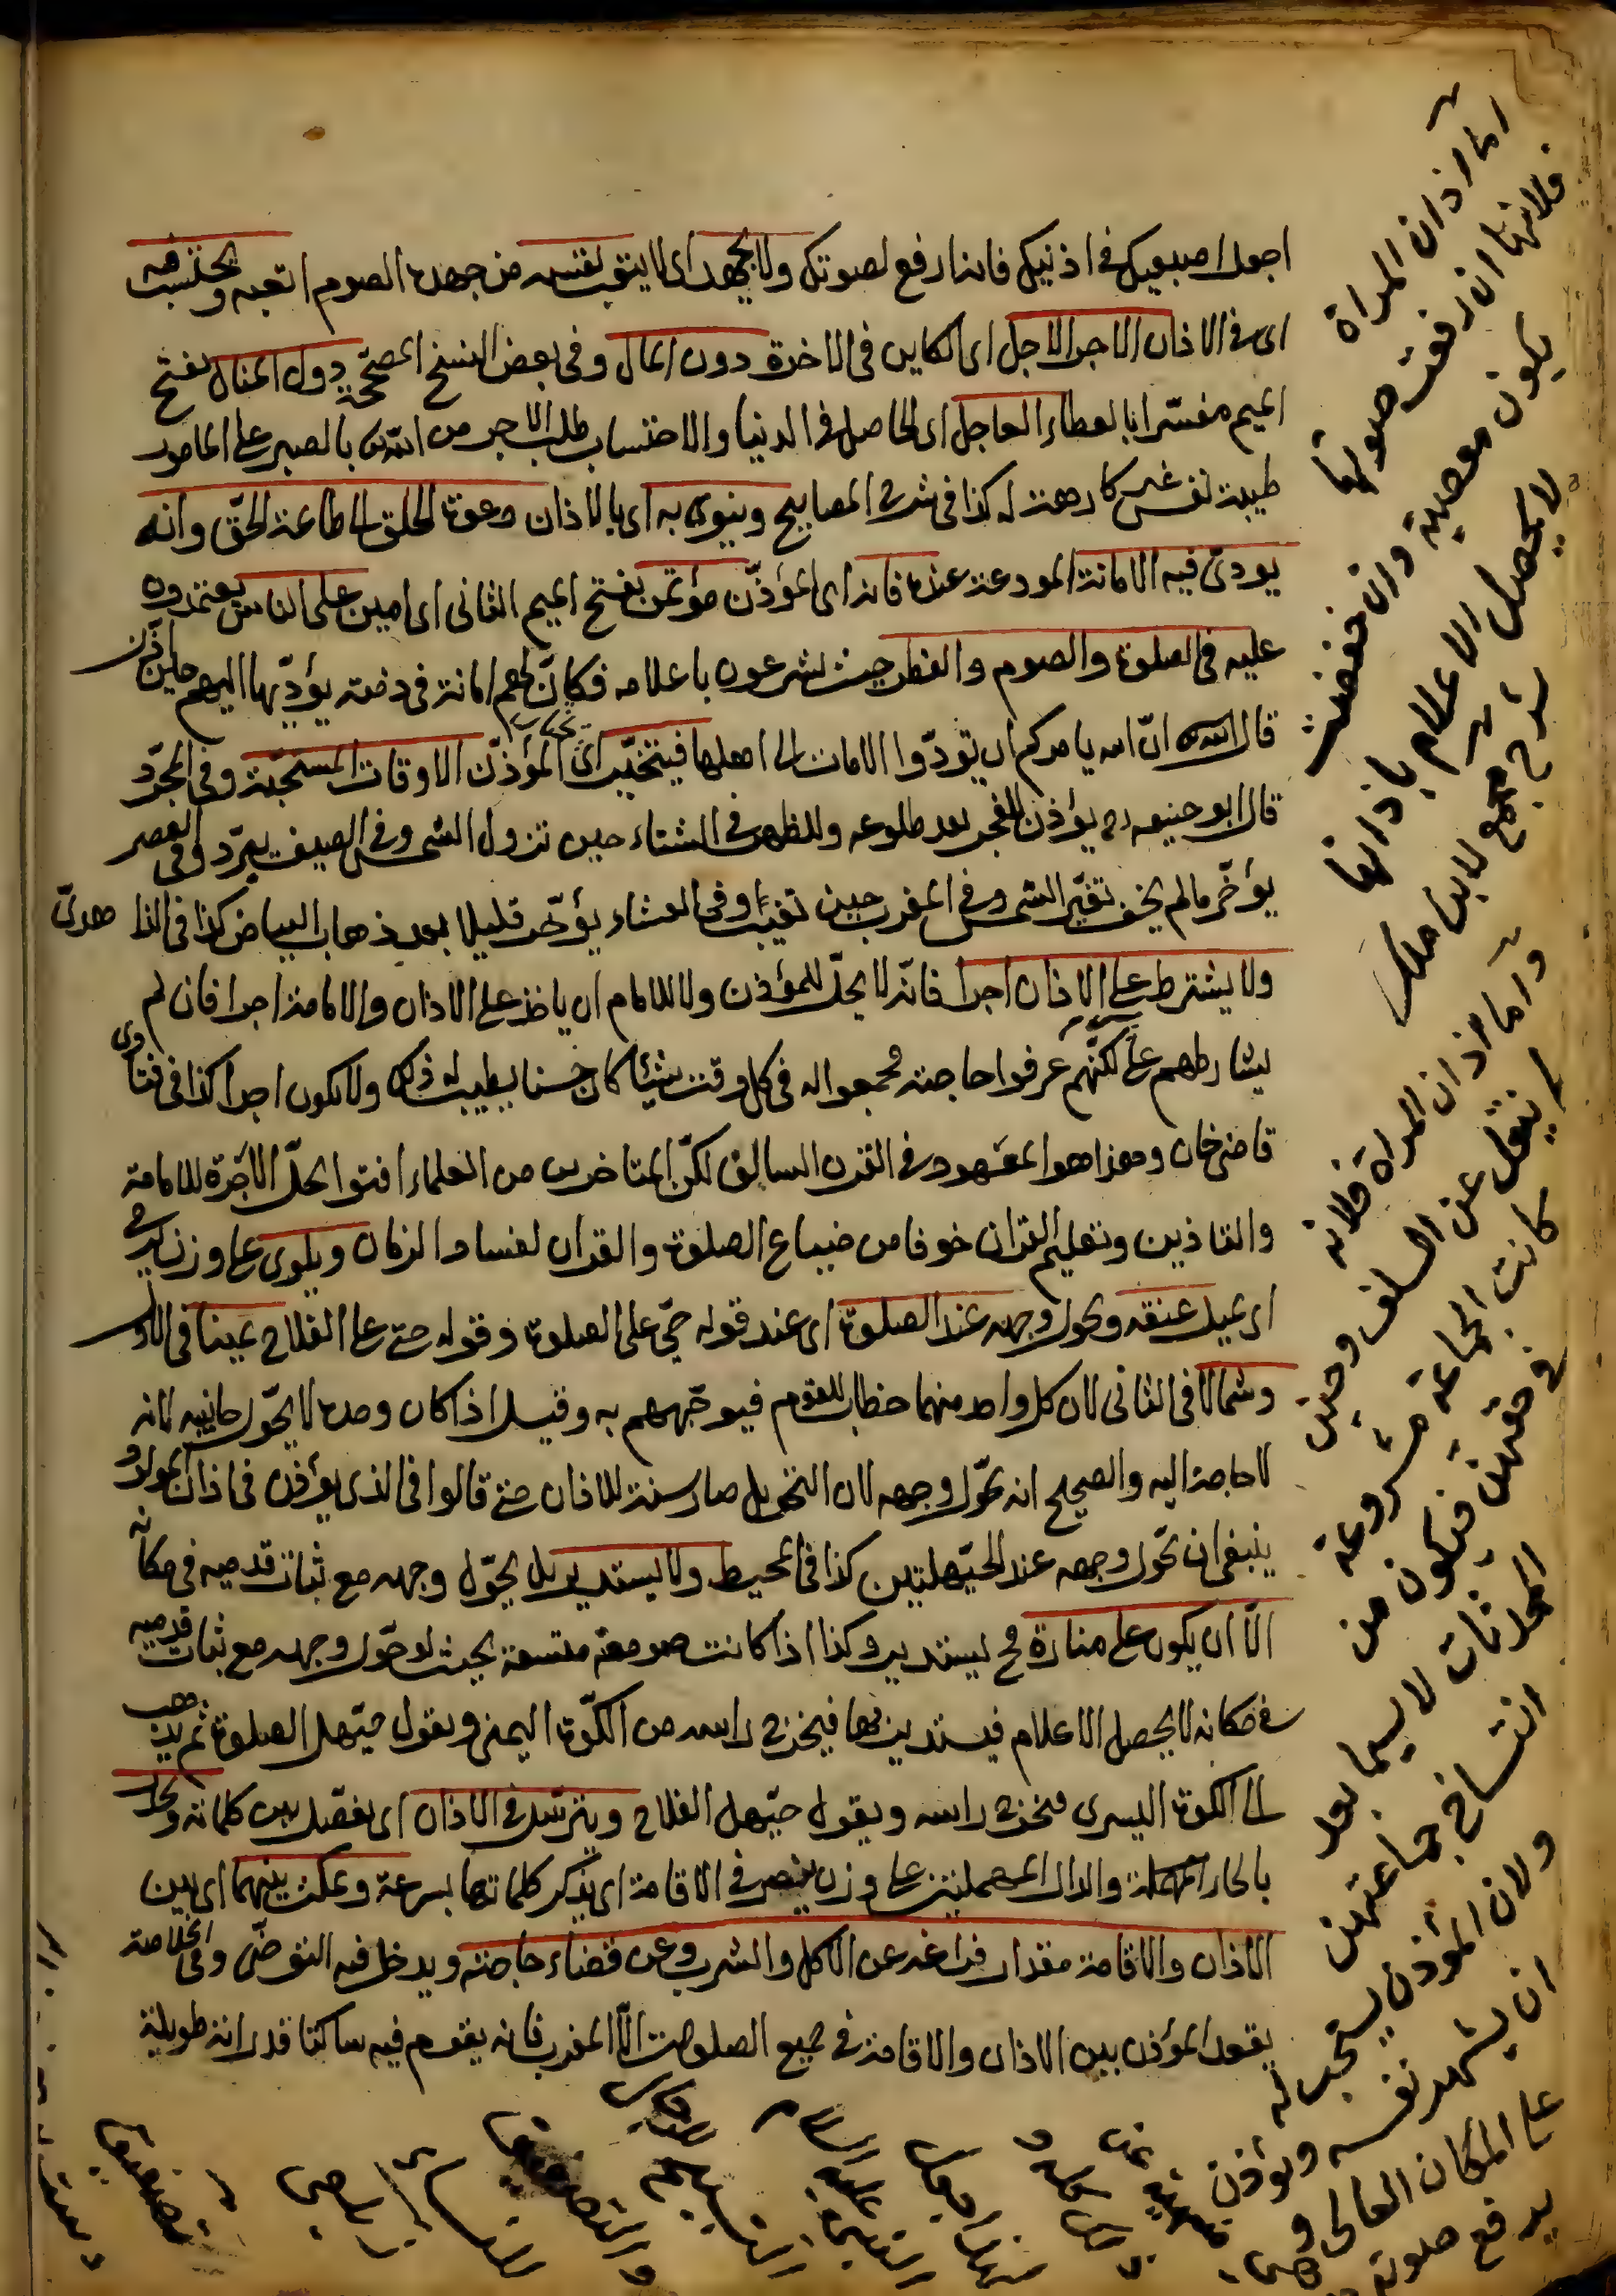 اجعل اصبعيك فى اذنيك فانه ارفع لصوتك ولا يجهد اى لا يتعب نفسه من جهده الصوم اتعبه ويحتسب فيه
اى فى الاذان الاجر الاجل اى الكاين فى الاخرة دون المال وفى بعض النسخ المصححة دون المنال بفتح
الميم مفسرا بالعطاء العاجل اى الحاصل فى الدنيا والاحتساب طلب الاجر من الله بالصبر على المامور
طيبة نفس غير كارهة له كذا فى شرح المصابيح وينوى به اى بالاذان دعوة الخلق الى طاعة الحق وانه
يودى فيه الامانة المودعة عنده فانه اى المؤذن مؤتمن بفتح الميم الثانى اى امين على الناس يعتمدون
عليه فى الصلوة والصوم والفطر حيث يشرعون باعلامه فكان لهم امانة فى ذمته يؤديها اليهم حين اذن
قال الله ان الله يامركم ان تؤدوا الامانات الى اهلها فيتخير اى المؤذن الاوقات المستحبة وفى المجرد
قال ابو حنيفه رح يؤذن للفجر بعد طلوعه وللظهر فى الشتاء حين تزول الشمس وفى الصيف يبرد وفى العصر
يؤخر مالم يخف تغير الشمس وفى المغرب حين تغيب وفى العشاء يؤخر قليلا بعد ذهاب البياض كذا فى الزاهدى
ولا يشترط على الاذان اجرا فانه لا يحل للمؤذن ولا للامام ان ياخذ على الاذان والامامة اجرا فان لم
يشارطهم على لكنهم عرفوا حاجته فجمعوا له فى كل وقت شيئا كان حسنا يطيب له ذلك ولا يكون اجرا كذا فى فتاوى
قاضى خان وهذا هو المعهود فى القرن السالف لكن المتاخرين من العلماء افتوا بحل الاجرة للامامة
والتاذين وتعليم القران خوفا من ضياع الصلوة والقران لفساد الزمان ويلوى على وزن يرمى
اى يميل عنقه ويحول وجهه عند الصلوة اى عند قوله حى على الصلوة وقوله حى على الفلاح يمينا فى الاول
وشمالا فى الثانى لان كل واحد منهما خطاب للقوم فيوجههم به وقيل اذا كان وحده لا يحول جانبيه لانه
لا حاجة اليه والصحيح انه يحول وجهه لان التحويل صار سنة للاذان حتى قالوا فى الذى يؤذن فى اذان المولود
ينبغى ان يحول وجهه عند الحيعلتين كذا فى المحيط ولا يستدير بل يحول وجهه مع ثبات قدميه فى مكانه
الا ان يكون على منارة فح يستدير وكذا اذا كانت صومعة متسعة بحيث لو حول وجهه مع ثبات قدميه
فى مكانه لا يحصل الاعلام فيستدير فيها فيخرج راسه من الكوة اليمنى ويقول حيهل الصلوة ثم يذهب
الى الكوة اليسرى فيخرج راسه ويقول حيهل الفلاح ويترسل فى الاذان اى يفصل بين كلماته ويحدر
بالحاء المهملة والدال المهملتين على وزن ينصر فى الاقامة اى يذكر كلماتها بسرعة ويمكث بينهما اى بين
الاذان والاقامة مقدار فراغه عن الاكل والشرب وعن قضاء حاجته ويدخل فيه التوضى وفى الخلاصة
يقعد المؤذن بين الاذان والاقامة فى جميع الصلوات الا المغرب فانه يقوم فيه ساكتا قدر اية طويلة
اما اذان المراة
فلانها ان رفعت صوتها
يكون معصية وان خفضت
لا يحصل الاعلام باذانها
شرح مجمع لابن ملك
واما اذان المراة فلانه
لم ينقل عن السلف وحين
كانت الجماعة مشروعة
فى حقهن فيكون من
المحدثات لا سيما بعد
انتساخ جماعتهن
ولان المؤذن يستحب له
ان يشهر نفسه ويؤذن
على المكان العالى و
يرفع صوته